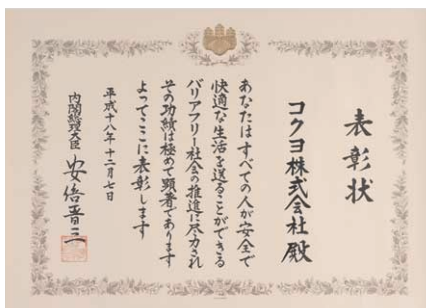 表彰状
コクヨ株式会社殿
あなたはすべての人が安全で
快適な生活を送ることができる
バリアフリー社会の推進に尽力され
その功績は極めて顕著であります
よってここに表彰します
平成十八年十二月七日
内閣総理大臣 安倍晋三